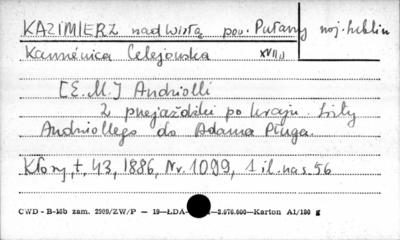 KAZIMIERZ nad Wisłą pow. Puławy woj. lublin
Kamienica Celejowska XVII w
[E. M.] Andriolli
Z przejażdżki po kraju. Listy
Andriollego do Adama Pługa.
Kłosy, t. 43, 1886, Nr. 1099, 1 il. na s. 56
CWD - B-16b zam. 2909/ZW/P — 19—ŁDA- —2.070.000—Karton A1/180 g